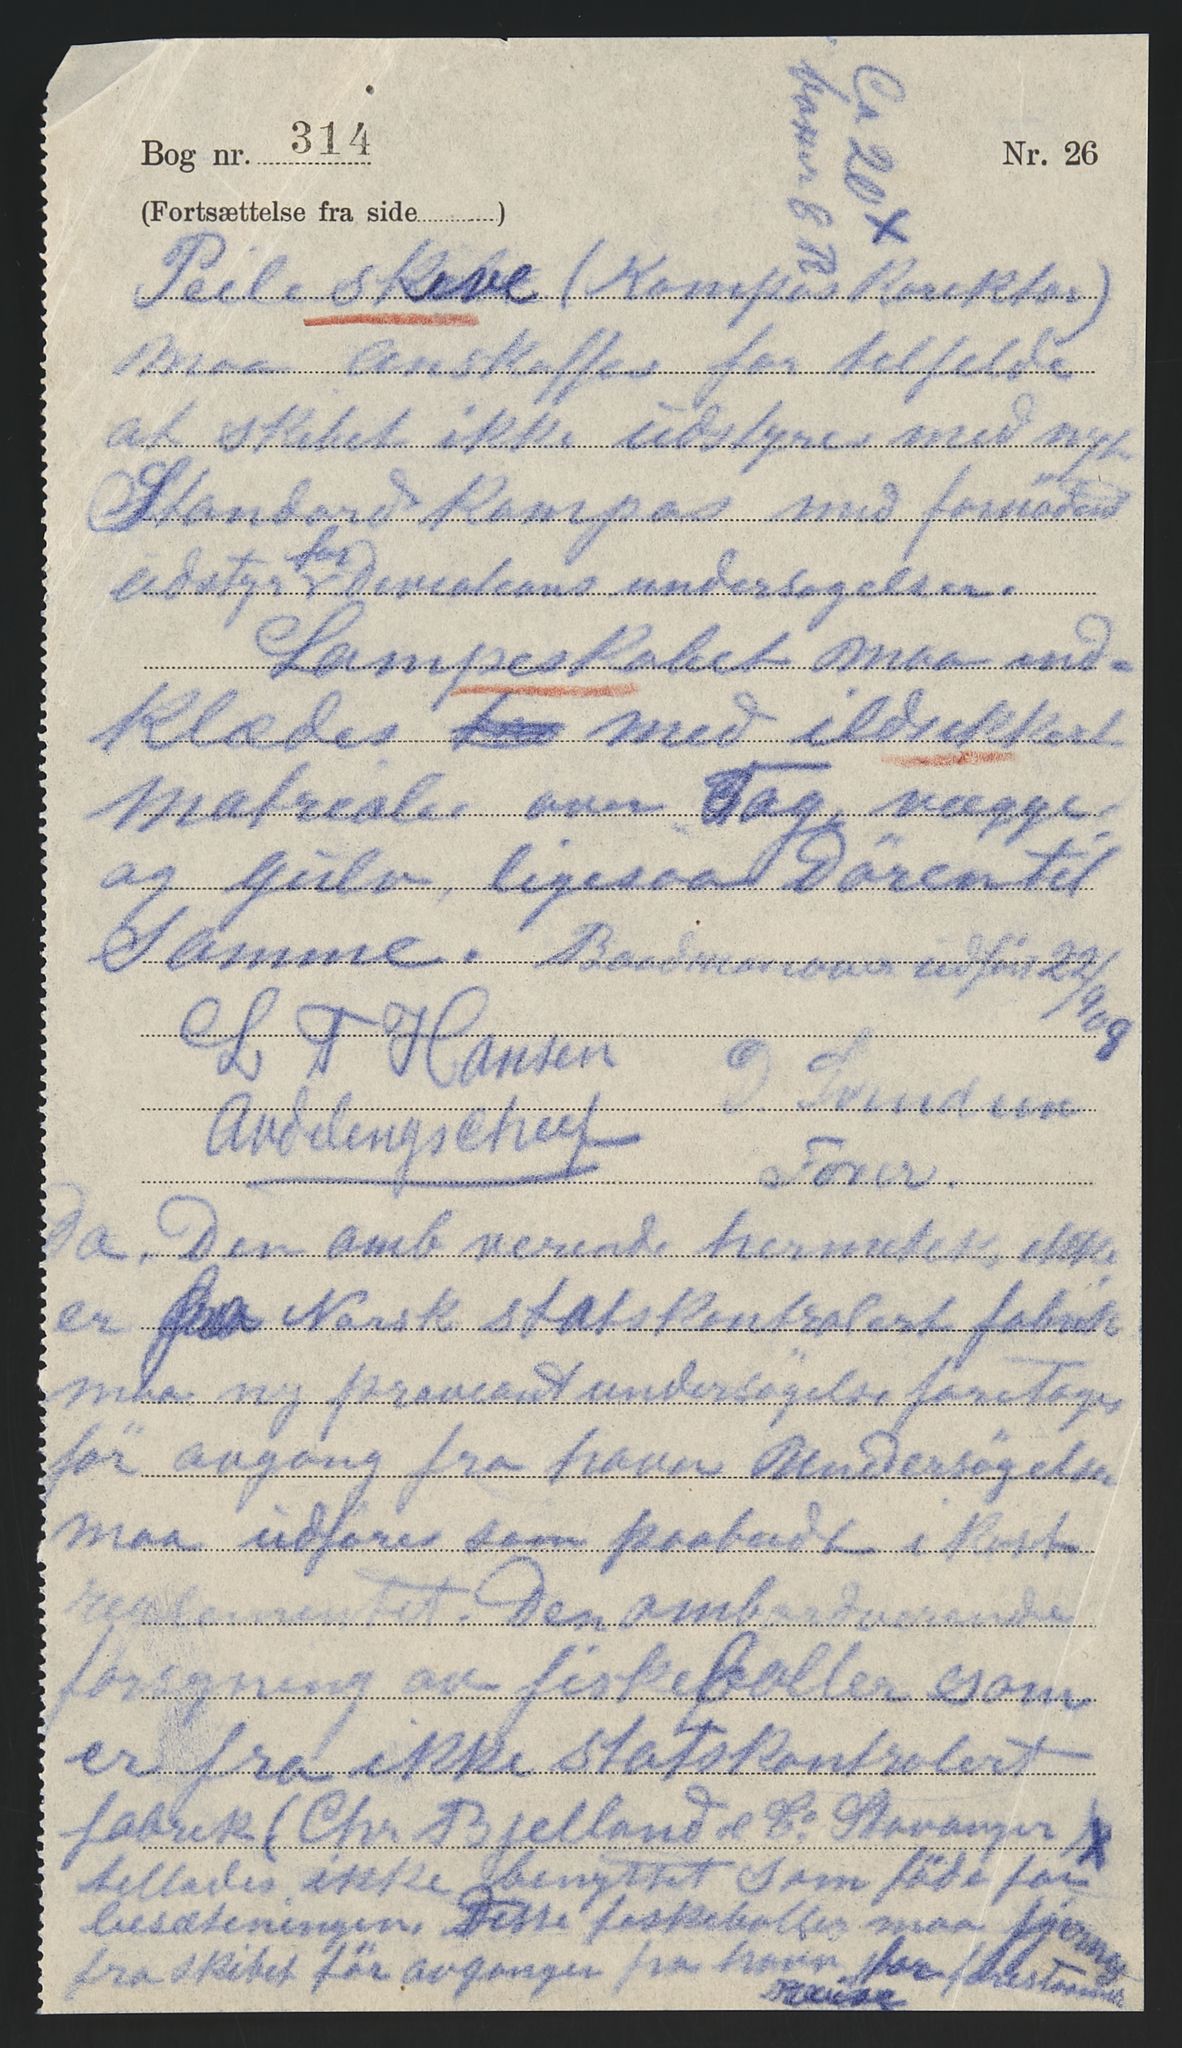 Ca 20 X
kasser à 12
Bog nr. 314
Nr. 26
(Fortsættelse fra side ............)
Peileskive (Kompas Korektor)
maa anskaffes for tilfelde
at skibet ikke udstyres med nyt
Standard Kompas med fornødent
udstyr for Deviations undersøgelser.
Lampeskabet maa ind-
klædes med ildsikkert
matrialer over Tag, vægge
og gulv, ligesaa Dören til
Samme. Baadmanøver udfört 22/9 08
L T Hansen
Avdelingschef
Förer.
Da. Den omb verende hermetik, ikke
er fra Norsk statskontrolert fabrik
maa ny proviantundersögelse foretages
för avgang fra havn Undersögelsen
maa udföres som paabudt i Kost
reglementet. Den ombordverende
forsyning av fiskeboller som
er fra ikke statskontrolert
fabrik (Chr Bjelland & Co. Stavanger) X
tillades ikke benyttet som föde for
besætningen. Disse fiskeboller maa fjernes
fra skibet för avgangen fra havn for forestaaende
Reise